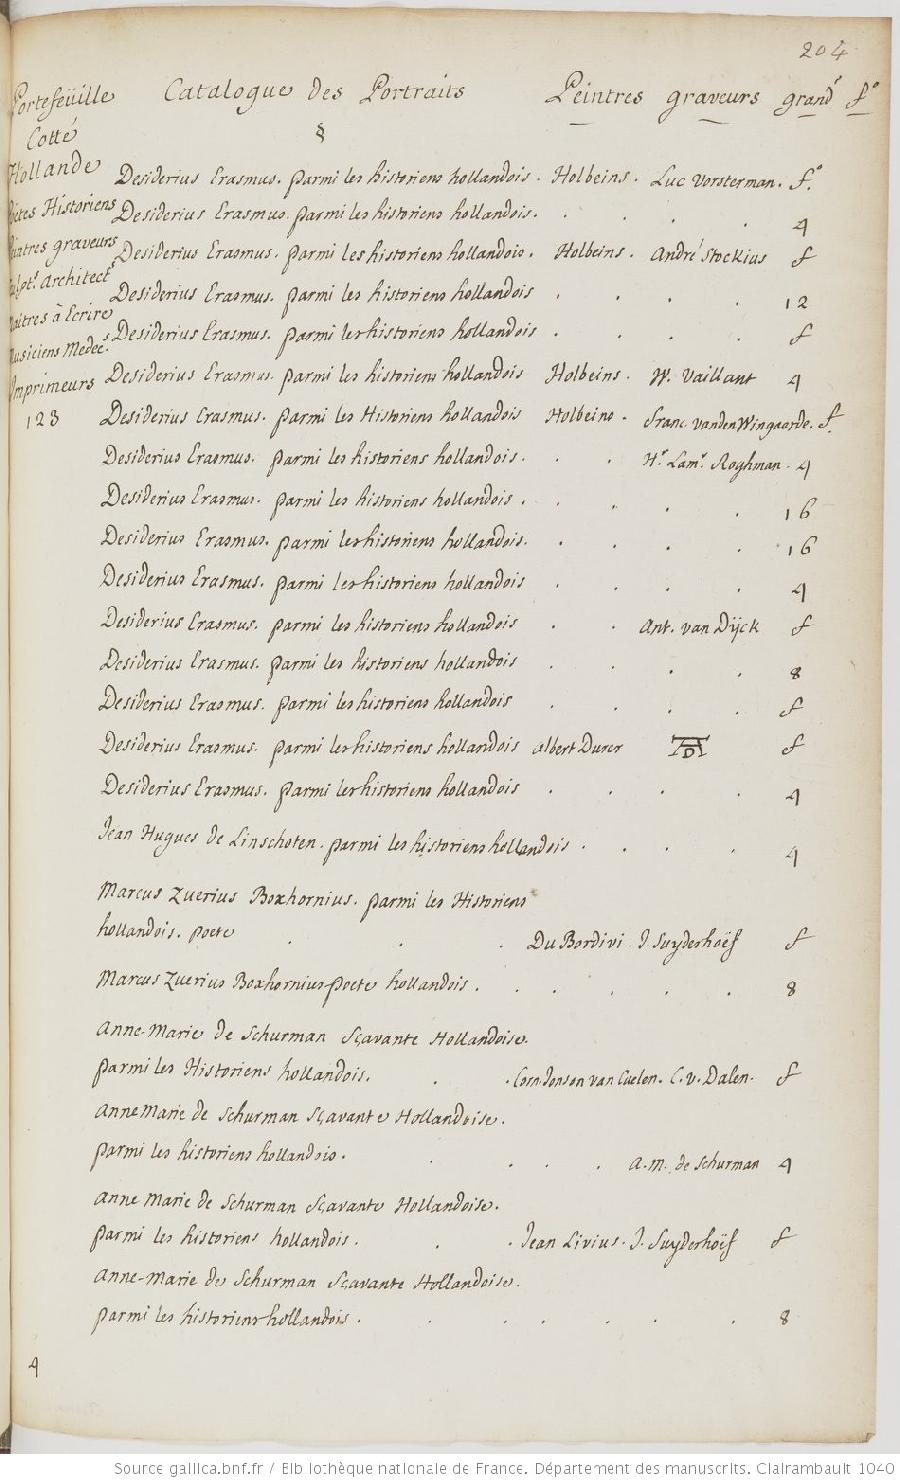 204
Portefeüille Catalogue des Portraits Peintres graveurs grandr fo
Cotté §
Hollande
Desiderius Erasmus. parmi les historiens hollandois. Holbeins. Luc Vorsterman. fo.
Poëtes Historiens Desiderius Erasmus. parmi les historiens hollandois. 4
Peintres graveurs Desiderius Erasmus. parmi les historiens hollandois. Holbeins. André Stockius f
Sculptrs Architects Desiderius Erasmus. parmi les historiens hollandois 12
Maitres à Ecrire Desiderius Erasmus. parmi les historiens hollandois f
Musiciens Medecs Desiderius Erasmus. parmi les historiens hollandois Holbeins. W. Vaillant 4
Imprimeurs Desiderius Erasmus. parmi les Historiens hollandois Holbeins. Franc. vanden Wingaarde. f.
123 Desiderius Erasmus. parmi les historiens hollandois. Hr. Lamr. Roghman. 4
Desiderius Erasmus. parmi les historiens hollandois. 16
Desiderius Erasmus. parmi les historiens hollandois. 16
Desiderius Erasmus. parmi les historiens hollandois 4
Desiderius Erasmus. parmi les historiens hollandois Ant. van Dÿck f
Desiderius Erasmus. parmi les historiens hollandois 8
Desiderius Erasmus. parmi les historiens hollandois f
Desiderius Erasmus. parmi les historiens hollandois albert Durer AD f
Desiderius Erasmus. parmi les historiens hollandois 4
Jean Hugues de Linschoten. parmi les historiens hollandois. 4
Marcus Zuerius Boxhornius. parmi les Historiens
hollandois. poete Du Bordivi J Suyderhoëf f
Marcus Zuerius Boxhornius poete hollandois. 8
Anne-Marie de Schurman Sçavante Hollandoise.
parmi les Historiens hollandois. Corn Jonson van Cuelen. C. v. Dalen. f
Anne Marie de Schurman Sçavante Hollandoise.
parmi les historiens hollandois. A. M. de Schurman 4
Anne Marie de Schurman Sçavante Hollandoise.
parmi les historiens hollandois. Jean Livius. J. Suyderhoëf f
Anne-Marie de Schurman Sçavante Hollandoise.
parmi les historiens hollandois. 8
4
Source gallica.bnf.fr / Bibliothèque nationale de France. Département des manuscrits. Clairambault 1040